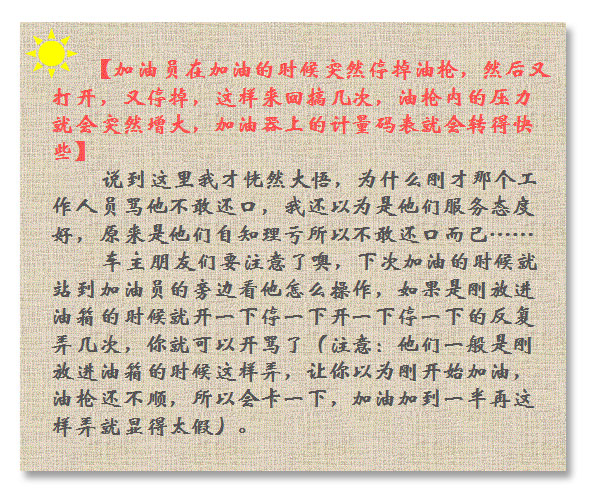 【加油员在加油的时候突然停掉油枪，然后又
打开，又停掉，这样来回搞几次，油枪内的压力
就会突然增大，加油器上的计量码表就会转得快
些】
说到这里我才恍然大悟，为什么刚才那个工
作人员骂他不敢还口，我还以为是他们服务态度
好，原来是他们自知理亏所以不敢还口而已……
车主朋友们要注意了噢，下次加油的时候就
站到加油员的旁边看他怎么操作，如果是刚放进
油箱的时候就开一下停一下开一下停一下的反复
弄几次，你就可以开骂了（注意：他们一般是刚
放进油箱的时候这样弄，让你以为刚开始加油，
油枪还不顺，所以会卡一下，加油加到一半再这
样弄就显得太假）。